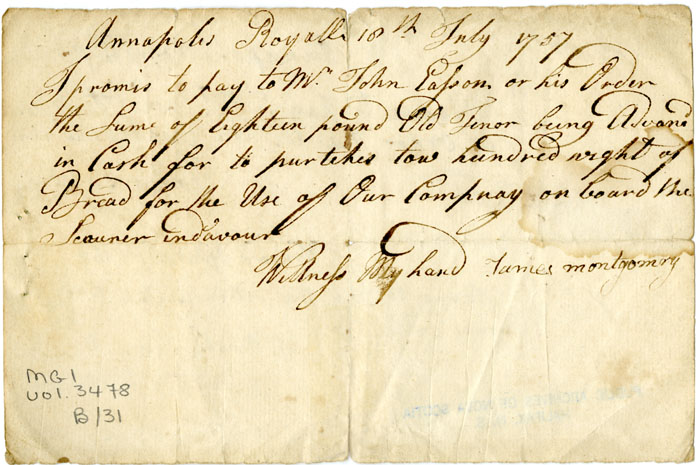 Annapolis Royall 18th July 1757
I promis to pay to Mr John Easson or his Order
the Sume of Eighteen pound Old Tenor being Advancd
in Cash for to purtches tow hundred wight of
Bread for the Use of Our Compnay on board the
Scauner indavour
Wittness My hand James montgomry
MG1
vol. 3478
B/31
PUBLIC ARCHIVES OF NOVA SCOTIA